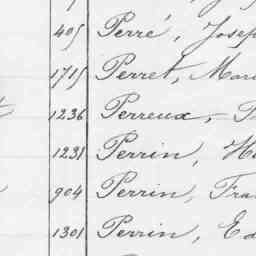 405 Perré, Josep
1715 Perret, Mari
1236 Perreux, P
1231 Perrin, H
904 Perrin, Fra
1301 Perrin, Ed